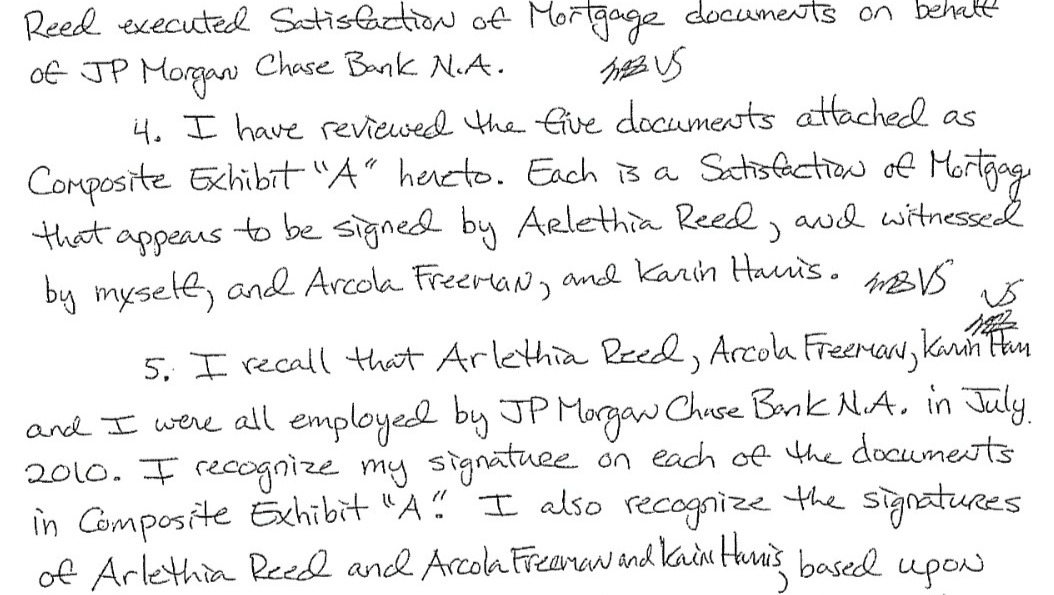 Reed executed Satisfaction of Mortgage documents on behalf
of JP Morgan Chase Bank N.A. VS
4. I have reviewed the five documents attached as
Composite Exhibit "A" hereto. Each is a Satisfaction of Mortgag
that appears to be signed by Arlethia Reed, and witnessed
by myself, and Arcola Freeman, and Karin Harris. VS
VS
5. I recall that Arlethia Reed, Arcola Freeman, Karin Harr
and I were all employed by JP Morgan Chase Bank N.A. in July
2010. I recognize my signature on each of the documents
in Composite Exhibit "A". I also recognize the signatures
of Arlethia Reed and Arcola Freeman and Karin Harris, based upon